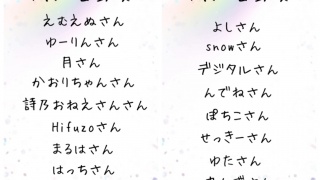 えむえぬさん
ゆーりんさん
月さん
かおりちゃんさん
詩乃おねえさんさん
Hifuzoさん
まるはさん
はっちさん
よしさん
snowさん
デジタルさん
んでねさん
ぽちこさん
せっきーさん
ゆたさん